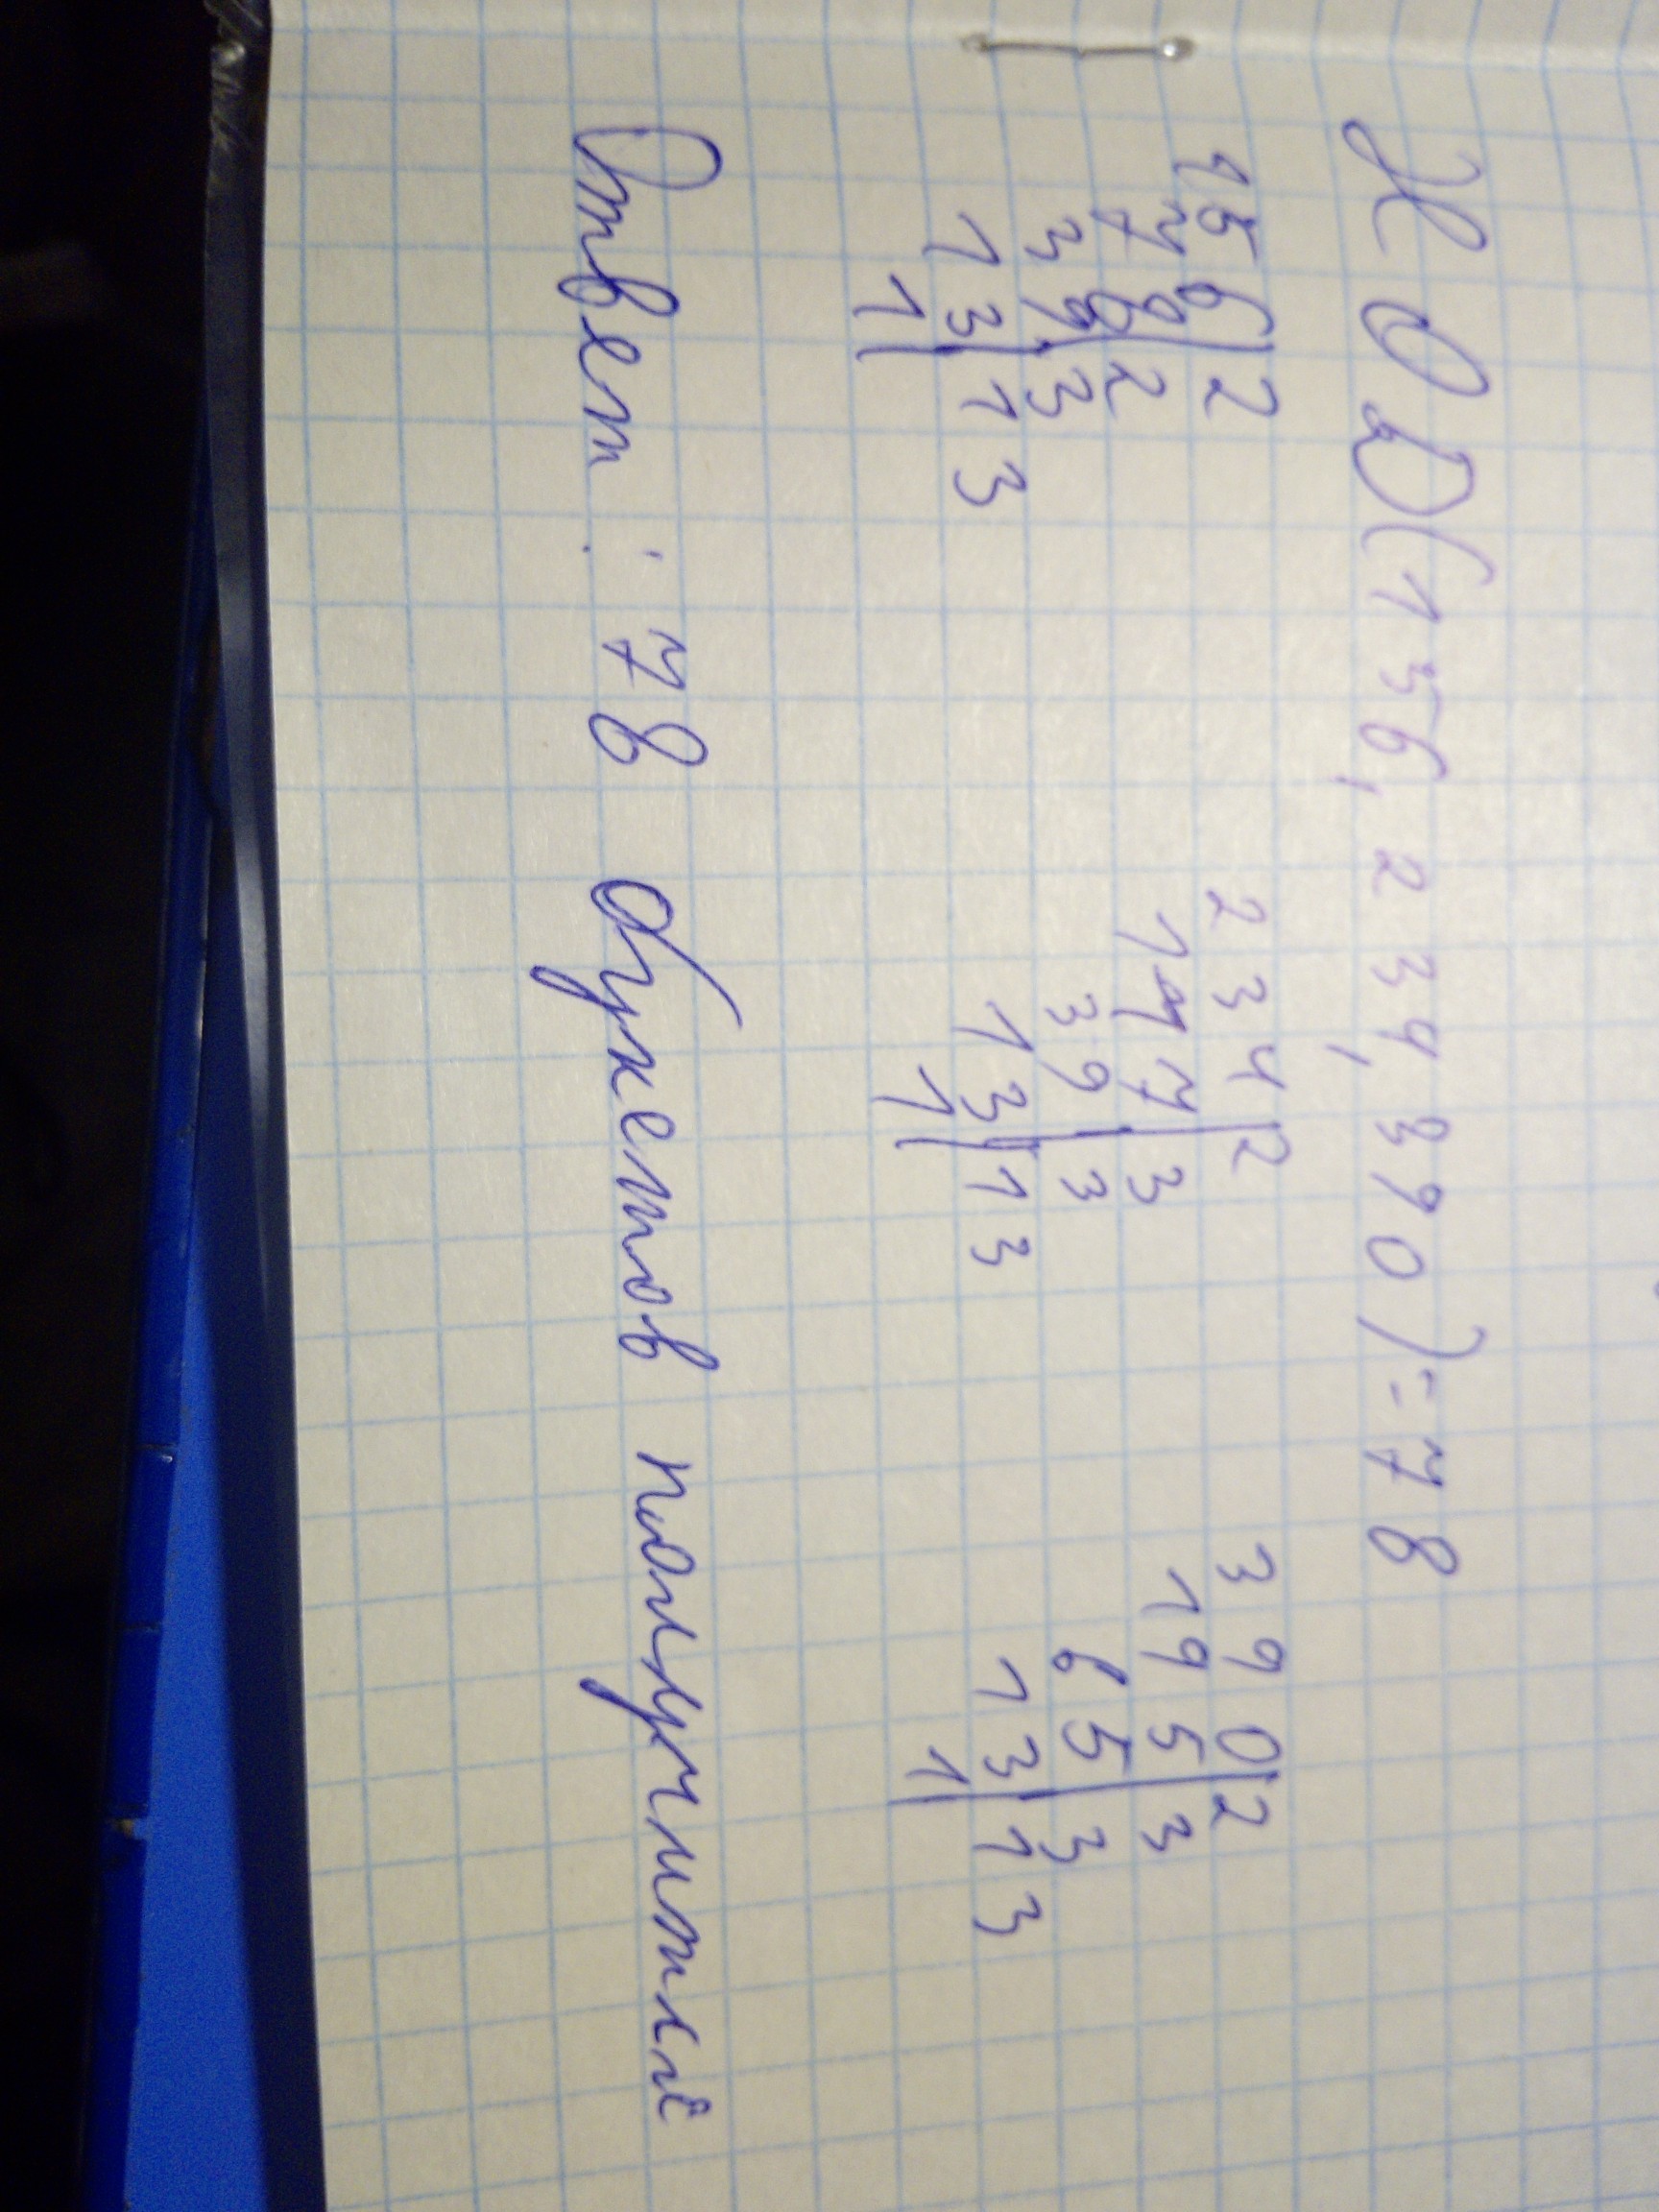 НОД(156, 234, 390)=78
156|2 234|2 390|2
78|2 117|3 195|3
39|3 39|3 65|3
13|13 13|13 13|13
1| 1| 1|
Ответ: 78 букетов получится